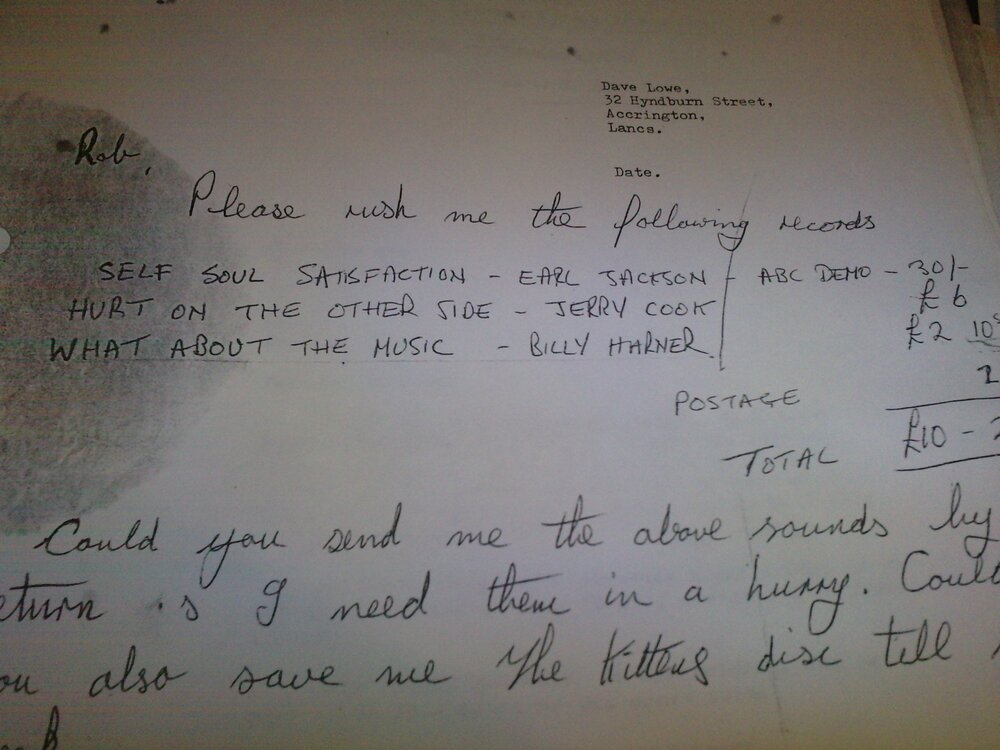 Dave Lowe,
32 Hyndburn Street,
Accrington,
Lancs.
Date.
Rob,
Please rush me the following records
SELF SOUL SATISFACTION - EARL JACKSON - ABC DEMO - 30/-
HURT ON THE OTHER SIDE - JERRY COOK £6
WHAT ABOUT THE MUSIC - BILLY HARNER. £2 10
POSTAGE 2
TOTAL £10 -
Could you send me the above sounds by
eturn s I need them in a hurry. Coul
ou also save me The Kittens disc till